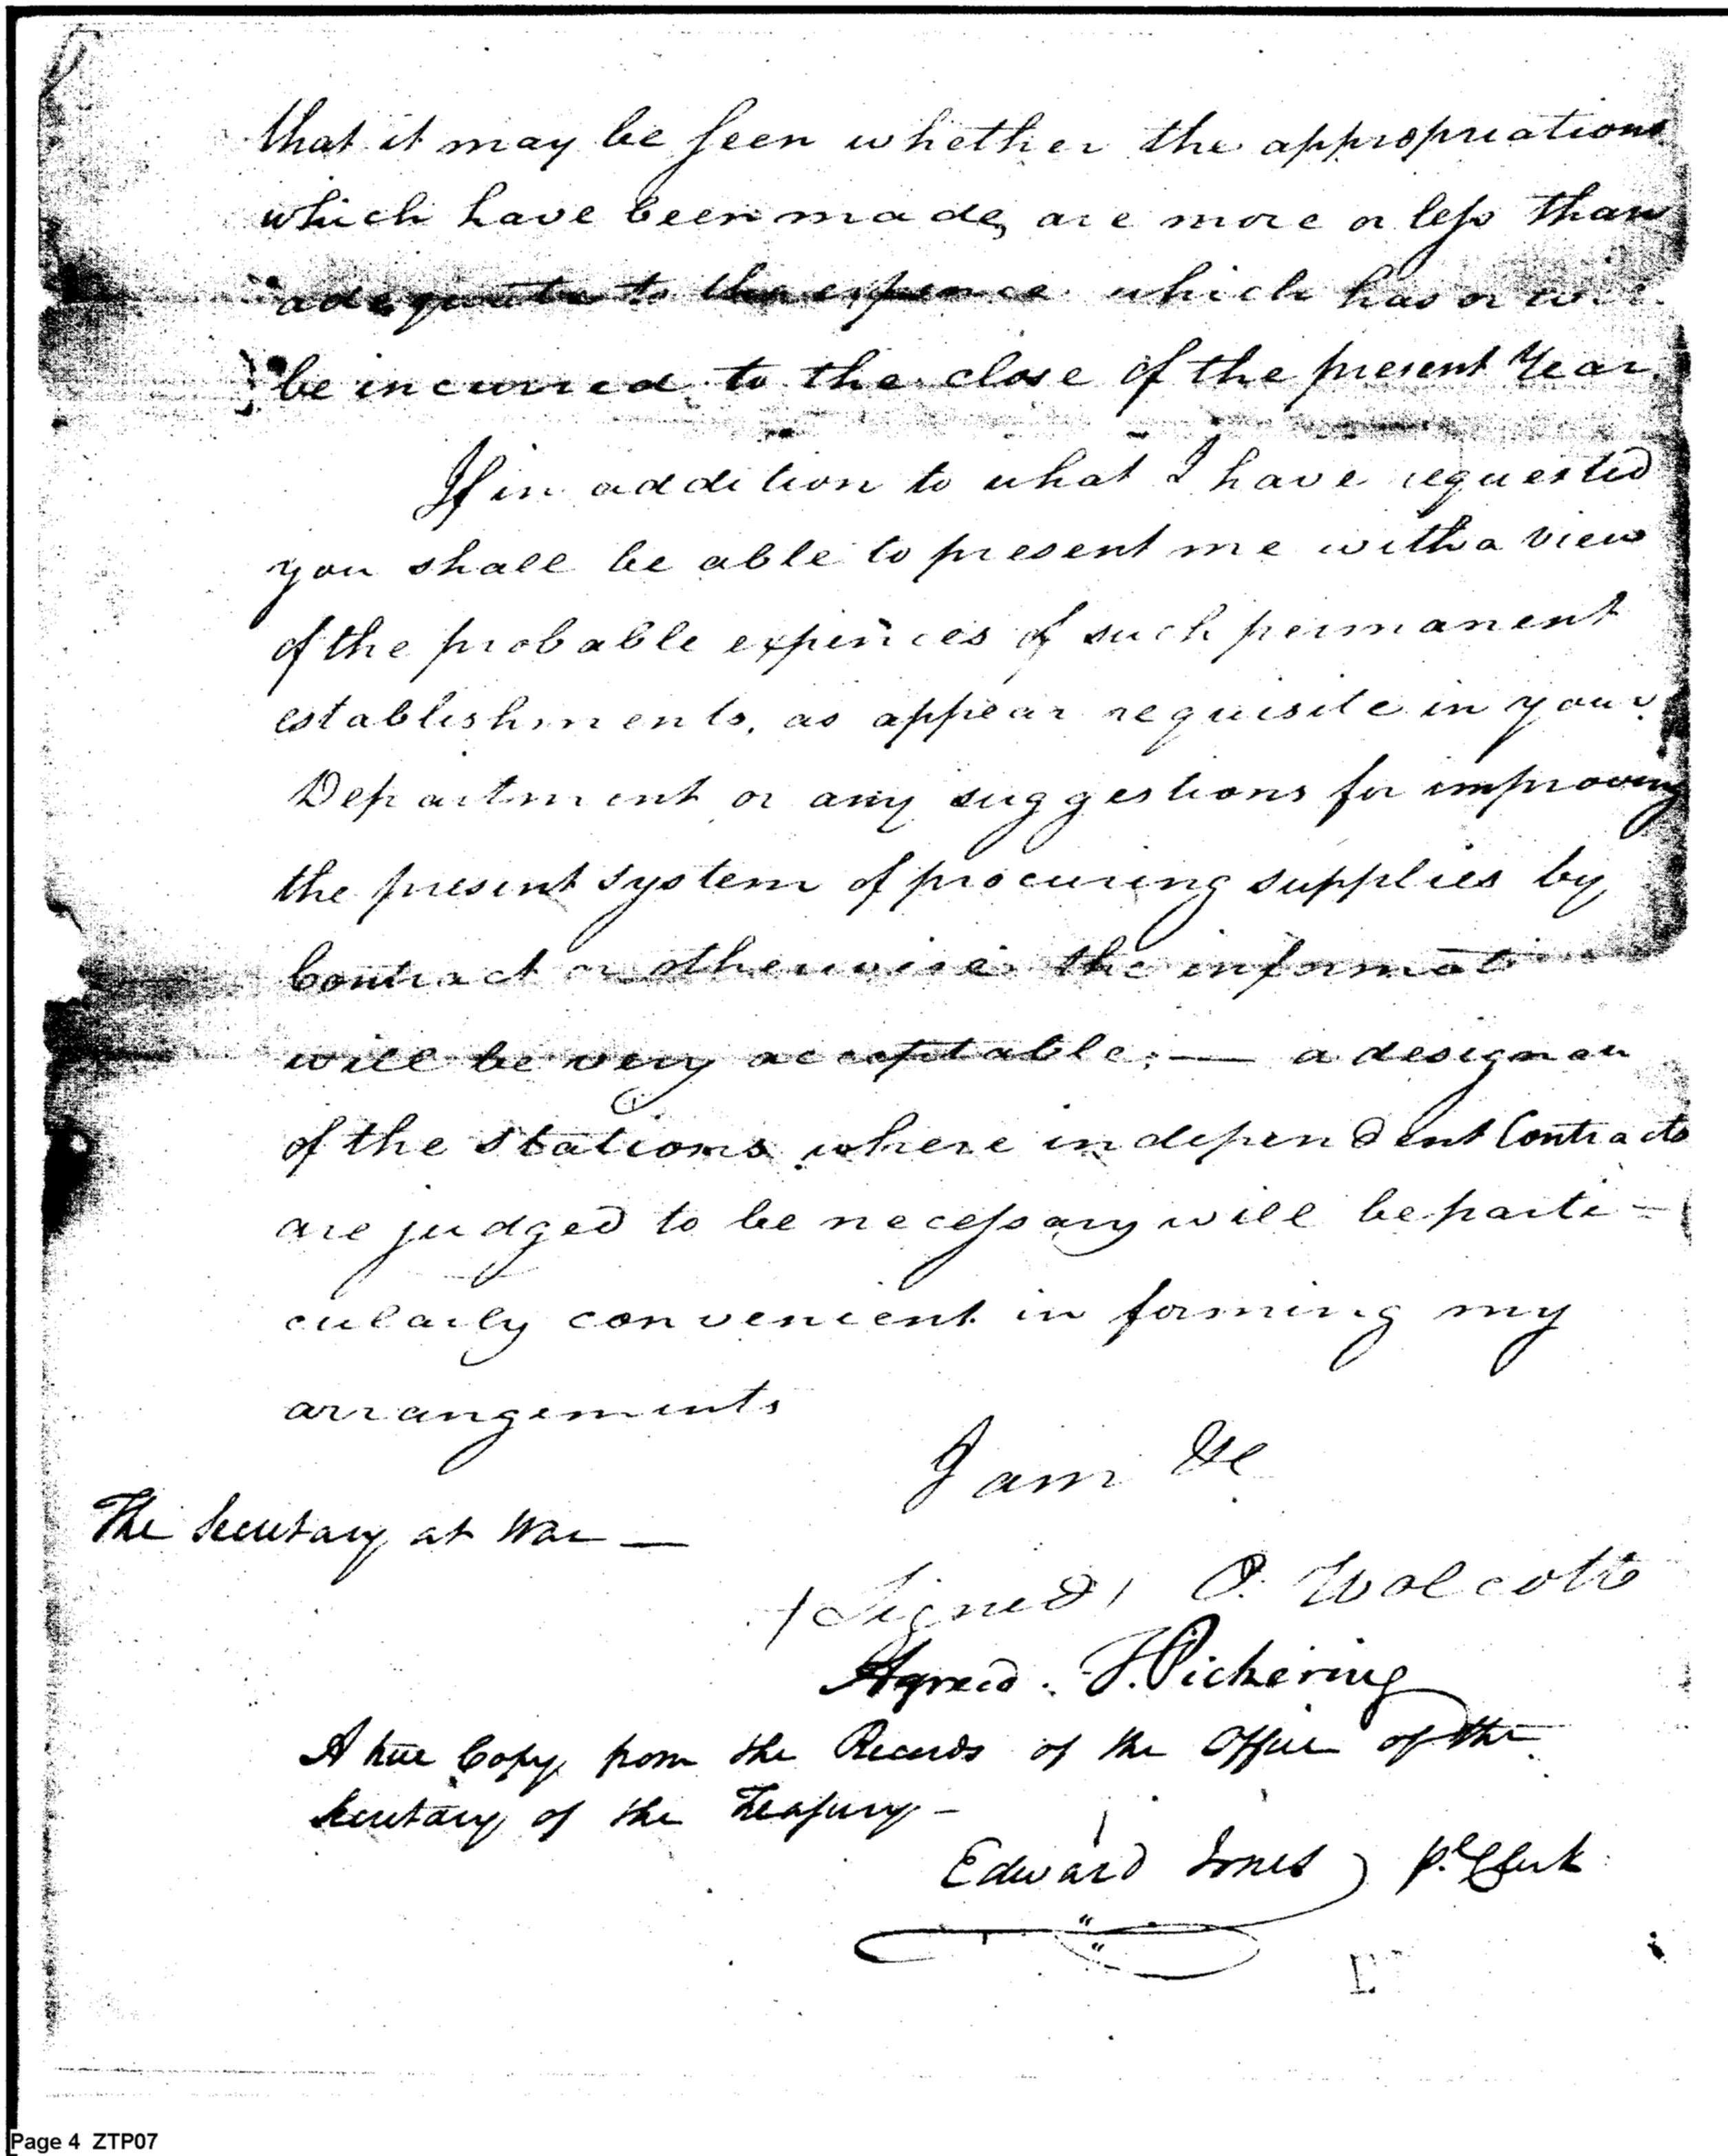 that it may be seen whether the appropriations
which have been made, are more or less than
adequate to the expence which has or will
be incurred to the close of the present Year.
If in addition to what I have requested
you shall be able to present me with a view
of the probable expences of such permanent
establishments, as appear requisite in your
Department or any suggestions for improving
the present system of procuring supplies by
Contract or otherwise the informati
will be very acceptable; — a design
of the stations where independent Contracts
are judged to be necessary will be parti-
cularly convenient in forming my
arrangements
I am &c
The Secretary at War —
(Signed) O. Wolcott
Agreed. T. Pickering
A true Copy from the Records of the Office of the
Secretary of the Treasury —
Edward Jones pl Clerk
Page 4 ZTP07